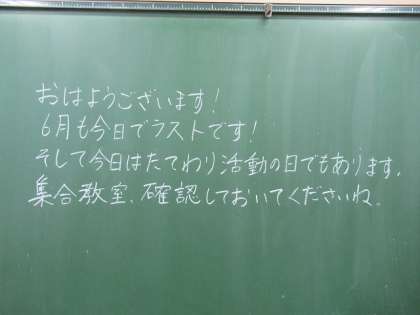 おはようございます!
6月も今日でラストです!
そして今日はたてわり活動の日でもあります。
集合教室、確認しておいてくださいね。